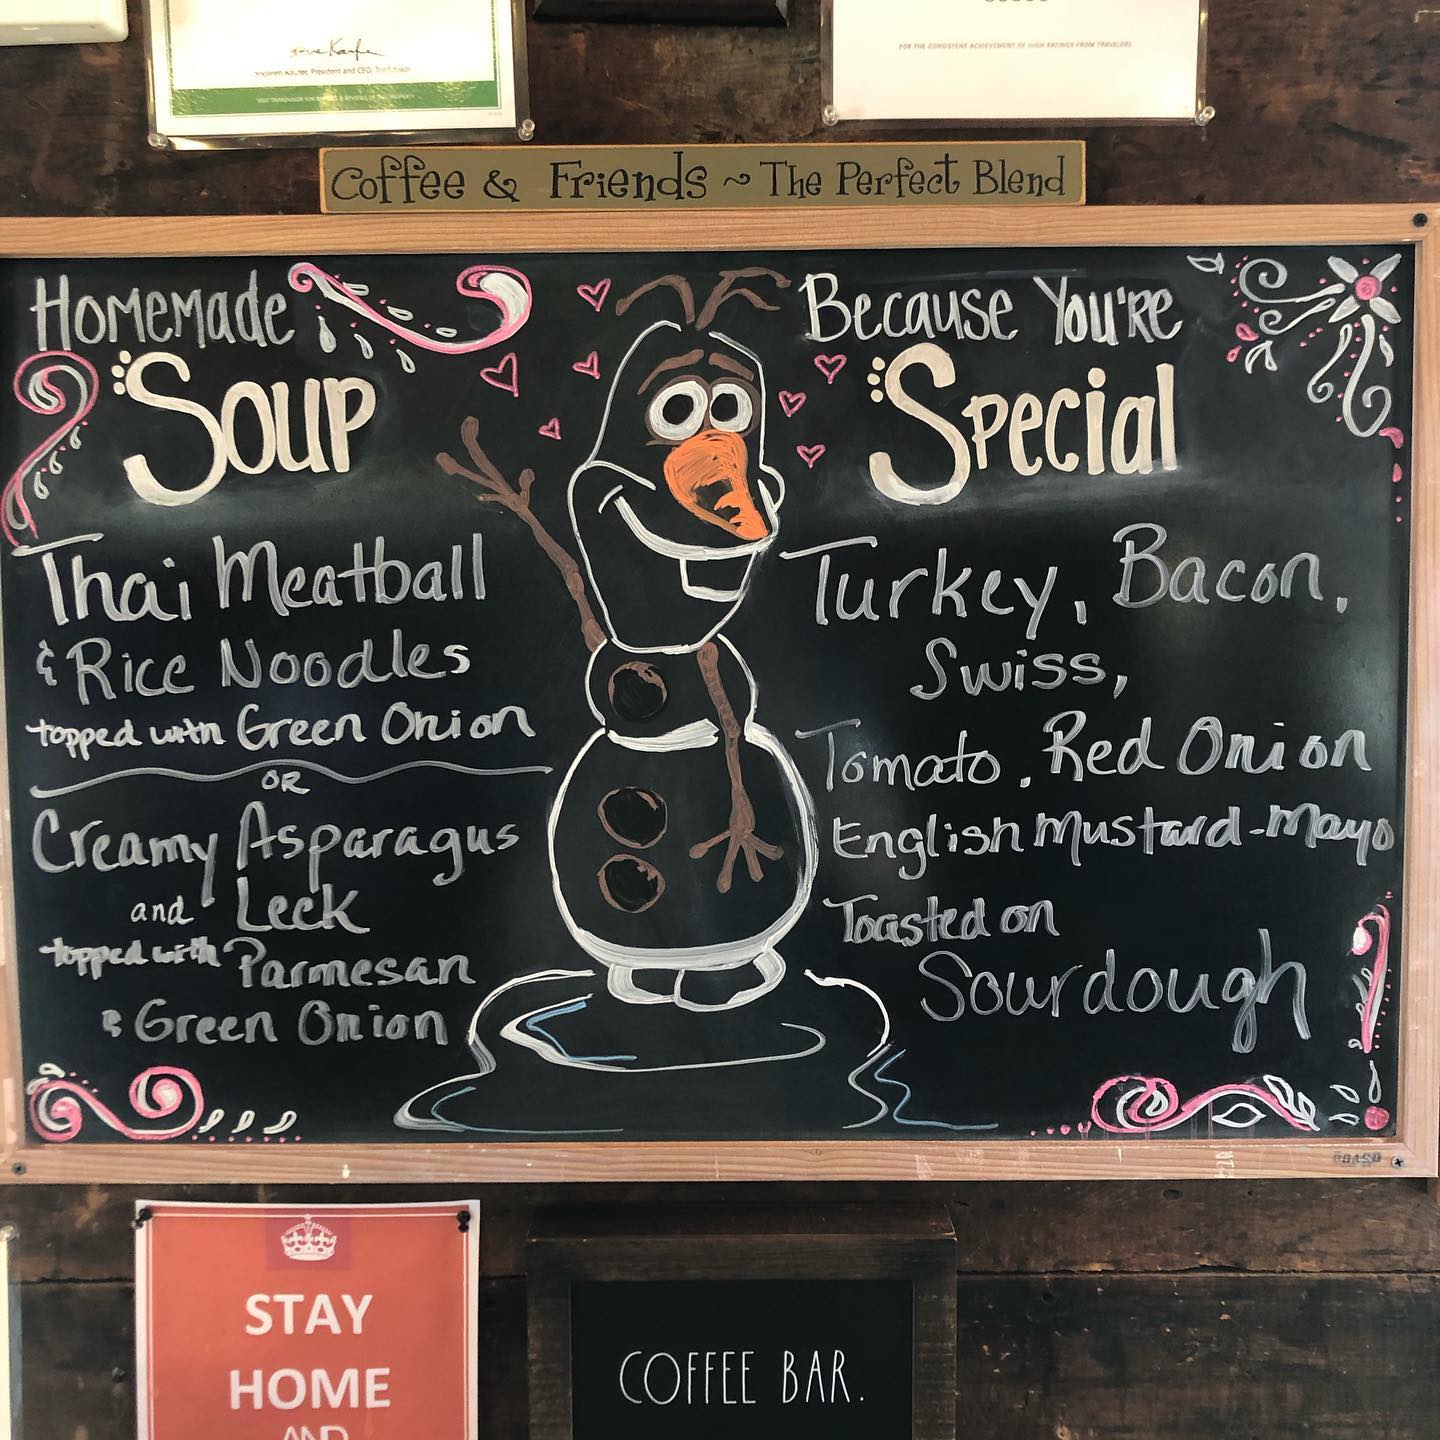 President and CEO, TripAdvisor
FOR THE CONSISTENT ACHIEVEMENT OF HIGH RATINGS FROM TRAVELERS
Coffee & Friends ~ The Perfect Blend
Homemade
Soup
Thai Meatball
& Rice Noodles
topped with Green Onion
OR
Creamy Asparagus
and Leek
topped with Parmesan
& Green Onion
Because You're
Special
Turkey, Bacon,
Swiss,
Tomato, Red Onion
English Mustard-Mayo
Toasted on
Sourdough
STAY
HOME
AND
COFFEE BAR.